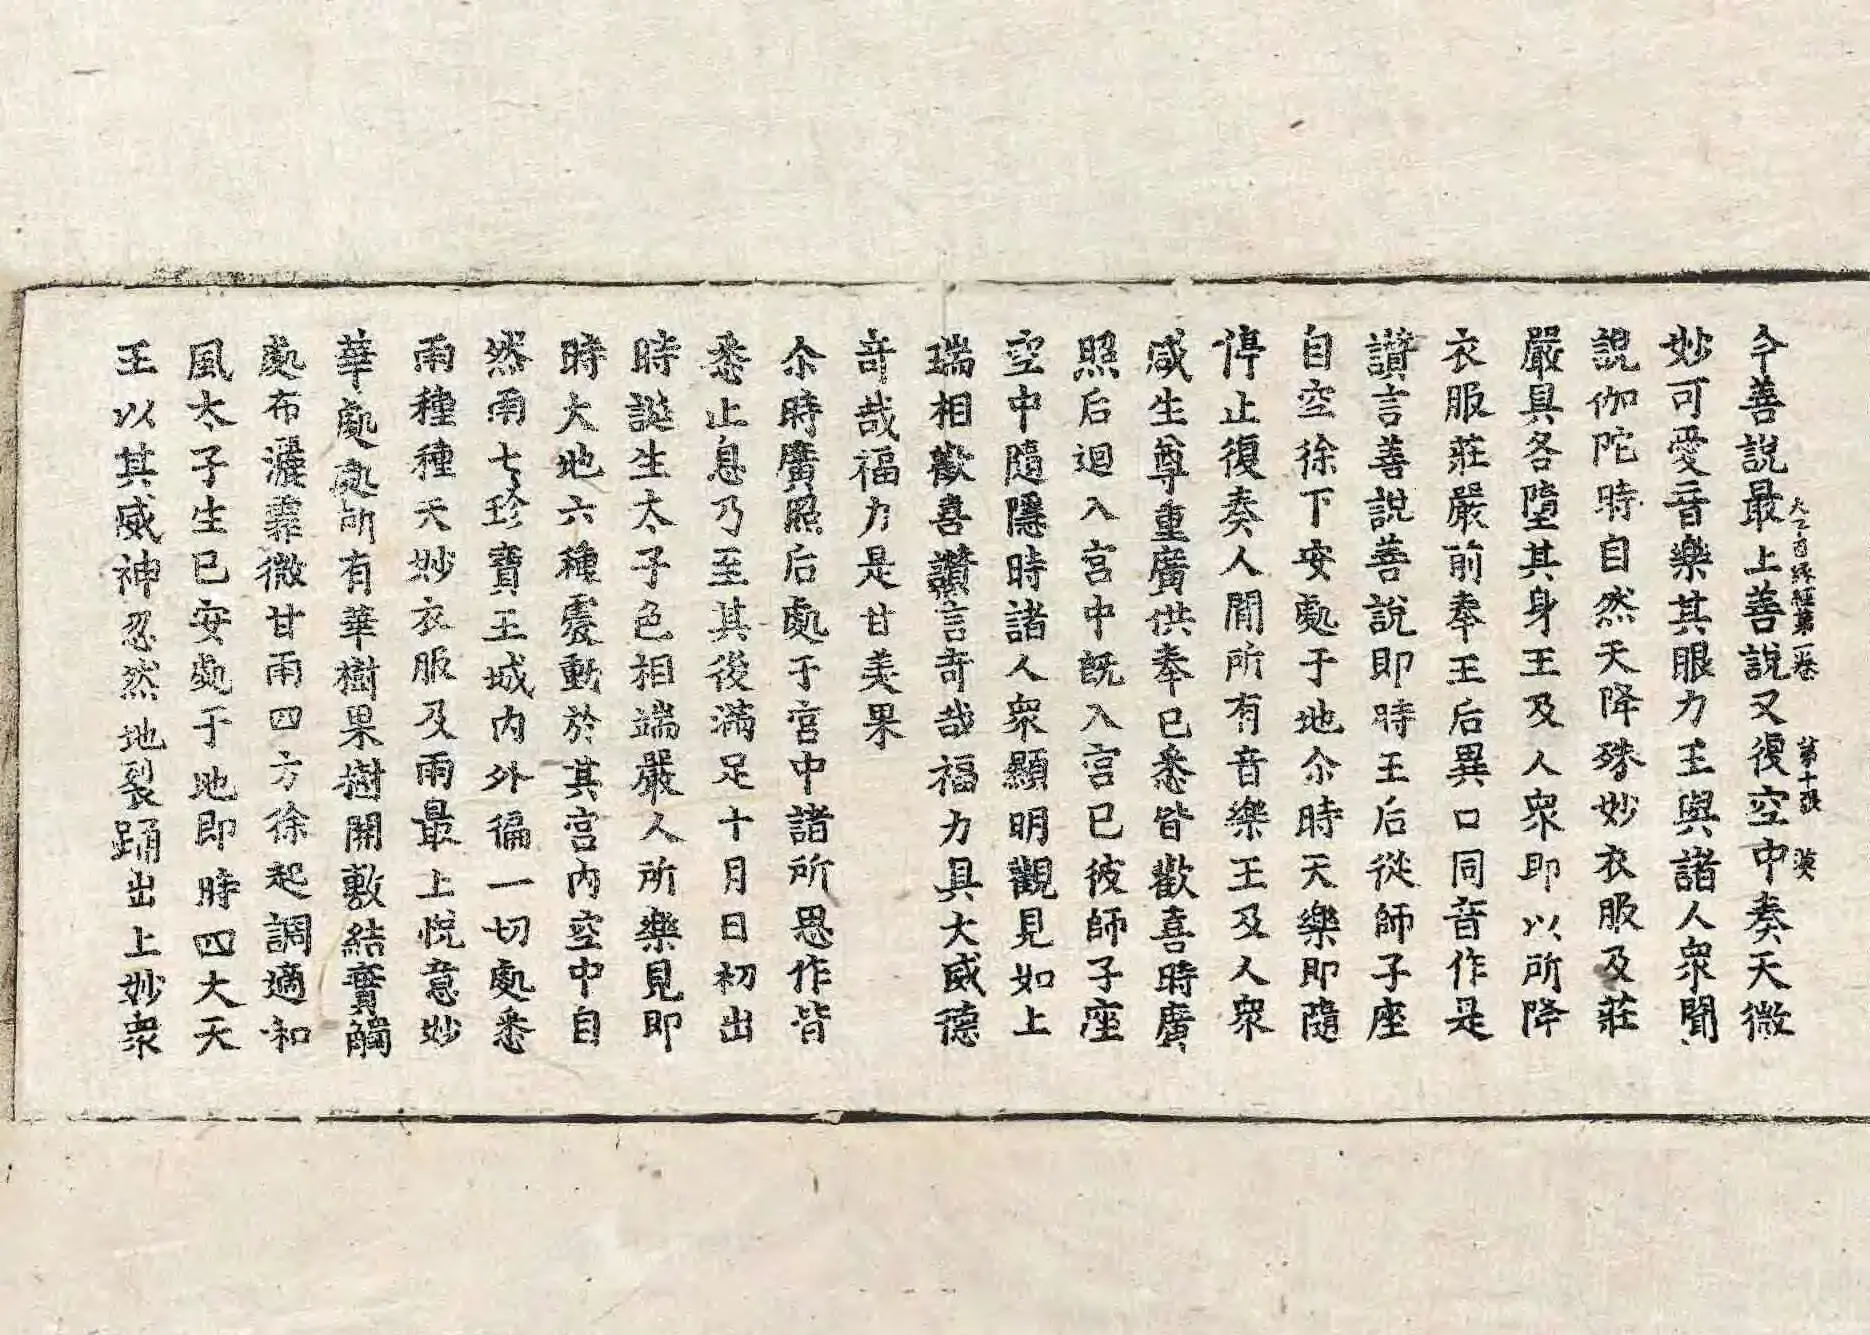 今善說最上善說又復空中奏天微
大乙因緣經第二卷 第十張 漠
妙可愛音樂其眼力王與諸人衆聞
說伽陀時自然天降殊妙衣服及莊
嚴具各墮其身王及人衆即以所降
衣服莊嚴前奉王后異口同音作是
讚言善說善說即時王后從師子座
自空徐下安處于地尒時天樂即隨
停止復奏人間所有音樂王及人衆
咸生尊重廣供奉已悉皆歡喜時廣
照后迴入宮中旣入宮已彼師子座
空中隨隱時諸人衆顯明觀見如上
瑞相歡喜讚言奇哉福力具大威德
奇哉福力是甘美果
尒時廣照后處于宮中諸所思作皆
悉止息乃至其後滿足十月日初出
時誕生太子色相端嚴人所樂見即
時大地六種震動於其宮內空中自
然雨七珍寶王城內外徧一切處悉
雨種種天妙衣服及雨最上悅意妙
華處處所有華樹果樹開敷結實觸
處布灑霏微甘雨四方徐起調適和
風太子生已安處于地即時四大天
王以其威神忽然地裂踊出上妙衆